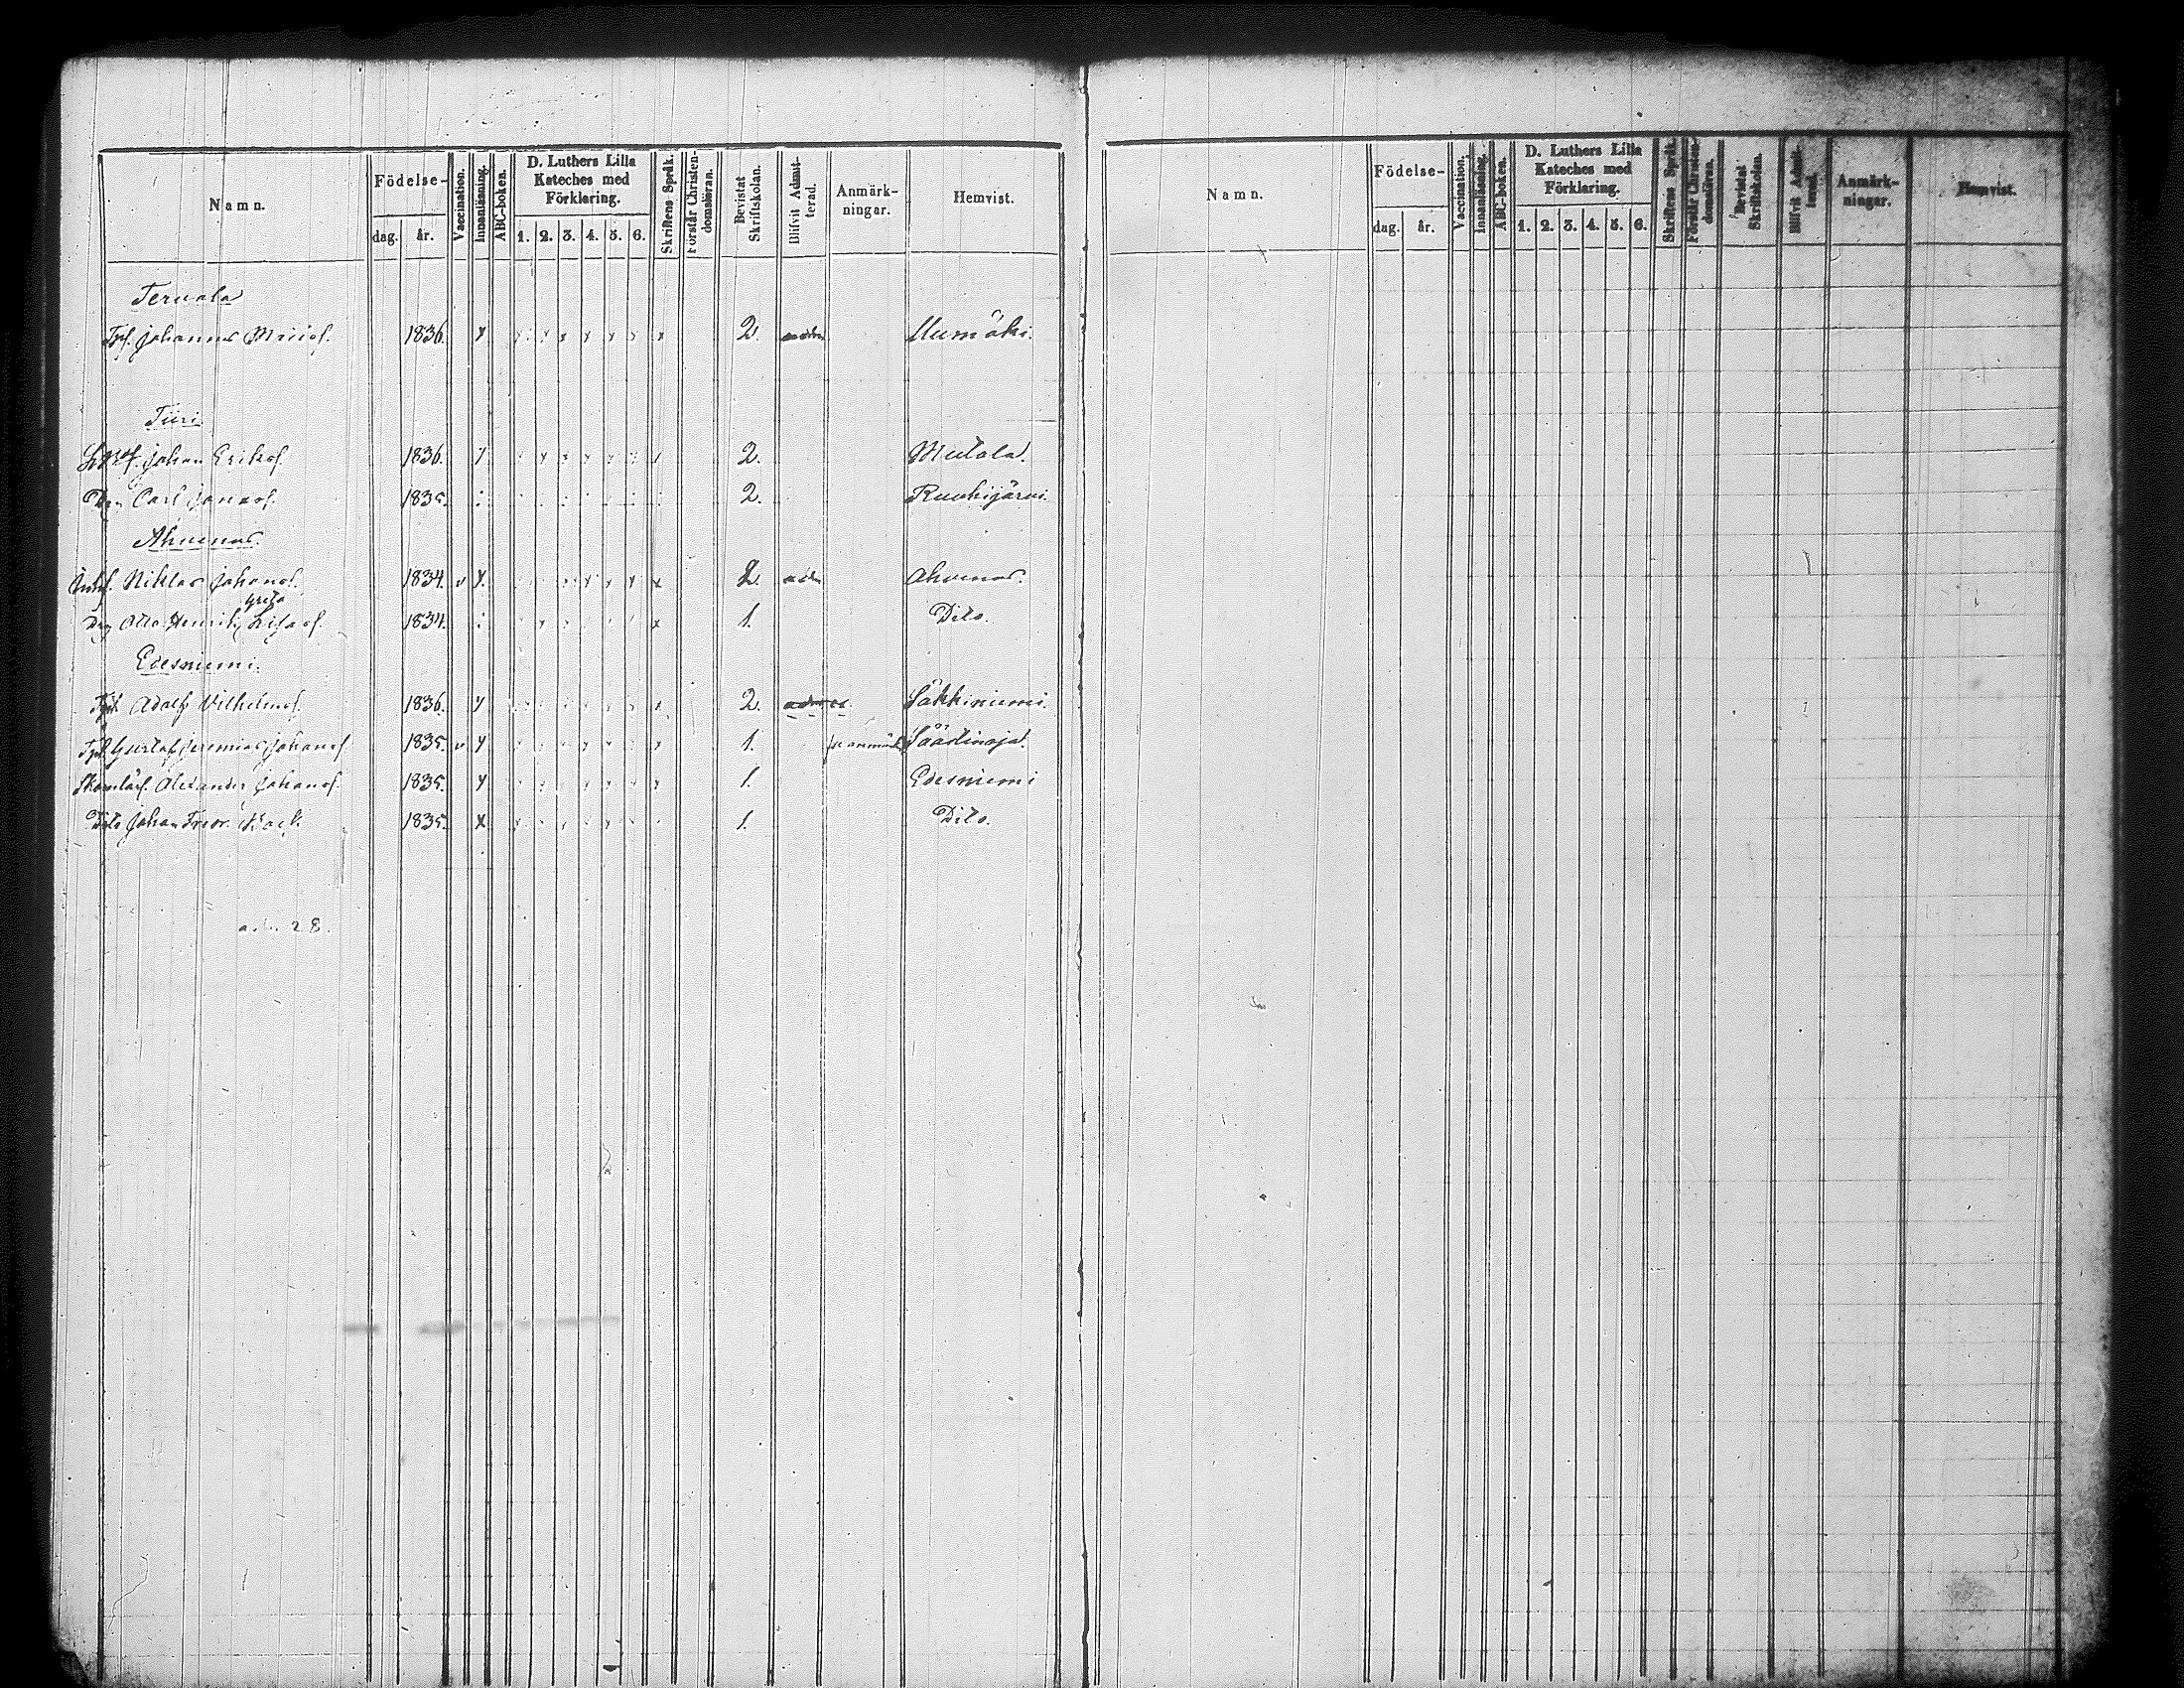 Namn. Födelse- dag. år. Vaccination. Innanläsning. ABC-boken. D. Luthers Lilla Kateches med Förklaring. 1. 2. 3. 4. 5. 6. Skriftens Språk. Förstår Christendomsläran. Bevistat Skriftskolan. Blifvit Admitterad. Anmärkningar. Hemvist.
Tervola
Johannes 1836. x x x x x x x x 2. adm. Uumäki.
Tiiri
Johan Eriksf. 1836. 2. Mutala.
Carl Johansf. 1835. 2. Ruuhijärvi.
Ahvenus.
Niklas Johansf. 1834. v x 2 adm Ahvenus.
Greta
Drg Otto Henrik Lisasf. 1834. x 1. Dito.
Edesniemi.
Adolf Vilhelmsf. 1836. 2. Säkkiniemi.
Gustaf Jeremias Johansf. 1835. v 1. Säästinoja.
Alexander Johansf. 1835. 1. Edesniemi
Dito Johan Fredr. 1835. x 1. Dito.
28.
Namn. Födelse- dag. år. Vaccination. Innanläsning. ABC-boken. D. Luthers Lilla Kateches med Förklaring. 1. 2. 3. 4. 5. 6. Skriftens Språk. Förstår Christendomsläran. Bevistat Skriftskolan. Blifvit Admitterad. Anmärkningar. Hemvist.